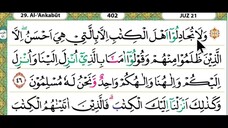 29. Al-'Ankabūt 402 JUZ 21
وَلَا تُجَادِلُوْٓا اَهْلَ الْكِتٰبِ اِلَّا بِالَّتِيْ هِيَ اَحْسَنُ اِلَّا
الَّذِيْنَ ظَلَمُوْا مِنْهُمْ وَقُوْلُوْٓا اٰمَنَّا بِالَّذِيْٓ اُنْزِلَ اِلَيْنَا وَاُنْزِلَ
اِلَيْكُمْ وَاِلٰهُنَا وَاِلٰهُكُمْ وَاحِدٌ وَّنَحْنُ لَهٗ مُسْلِمُوْنَ ٤٦
وَكَذٰلِكَ اَنْزَلْنَآ اِلَيْكَ الْكِتٰبَۗ فَالَّذِيْنَ اٰتَيْنٰهُمُ الْكِتٰبَ